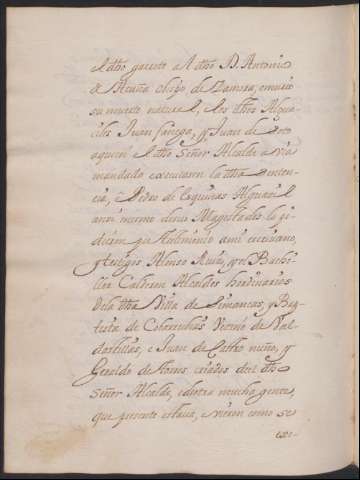 el dho garrote a el dho D. Antonio
de Acuña obispo de Zamora, e murio
su muerte natural, e los dhos Algua-
ciles Juan Gallego, y Juan de Soto
aquien el dho Señor Alcalde avia
mandado executasen la dha senten-
cia, e Pedro de Esquinas Alguacil
ansi mesmo de sus Magestades lo pi-
dieron por testimonio ami escrivano,
y testigos Alonso Ruiz, y el Bachi-
ller Calderon Alcaldes hordinarios
de la dha Villa de Simancas, y Bap-
tista de Vecino de Val-
destillas, e Juan de Castro nuño, y
Geraldo de criados del dho
Señor Alcalde, e otra mucha gente,
que presente estava, e vieron como se